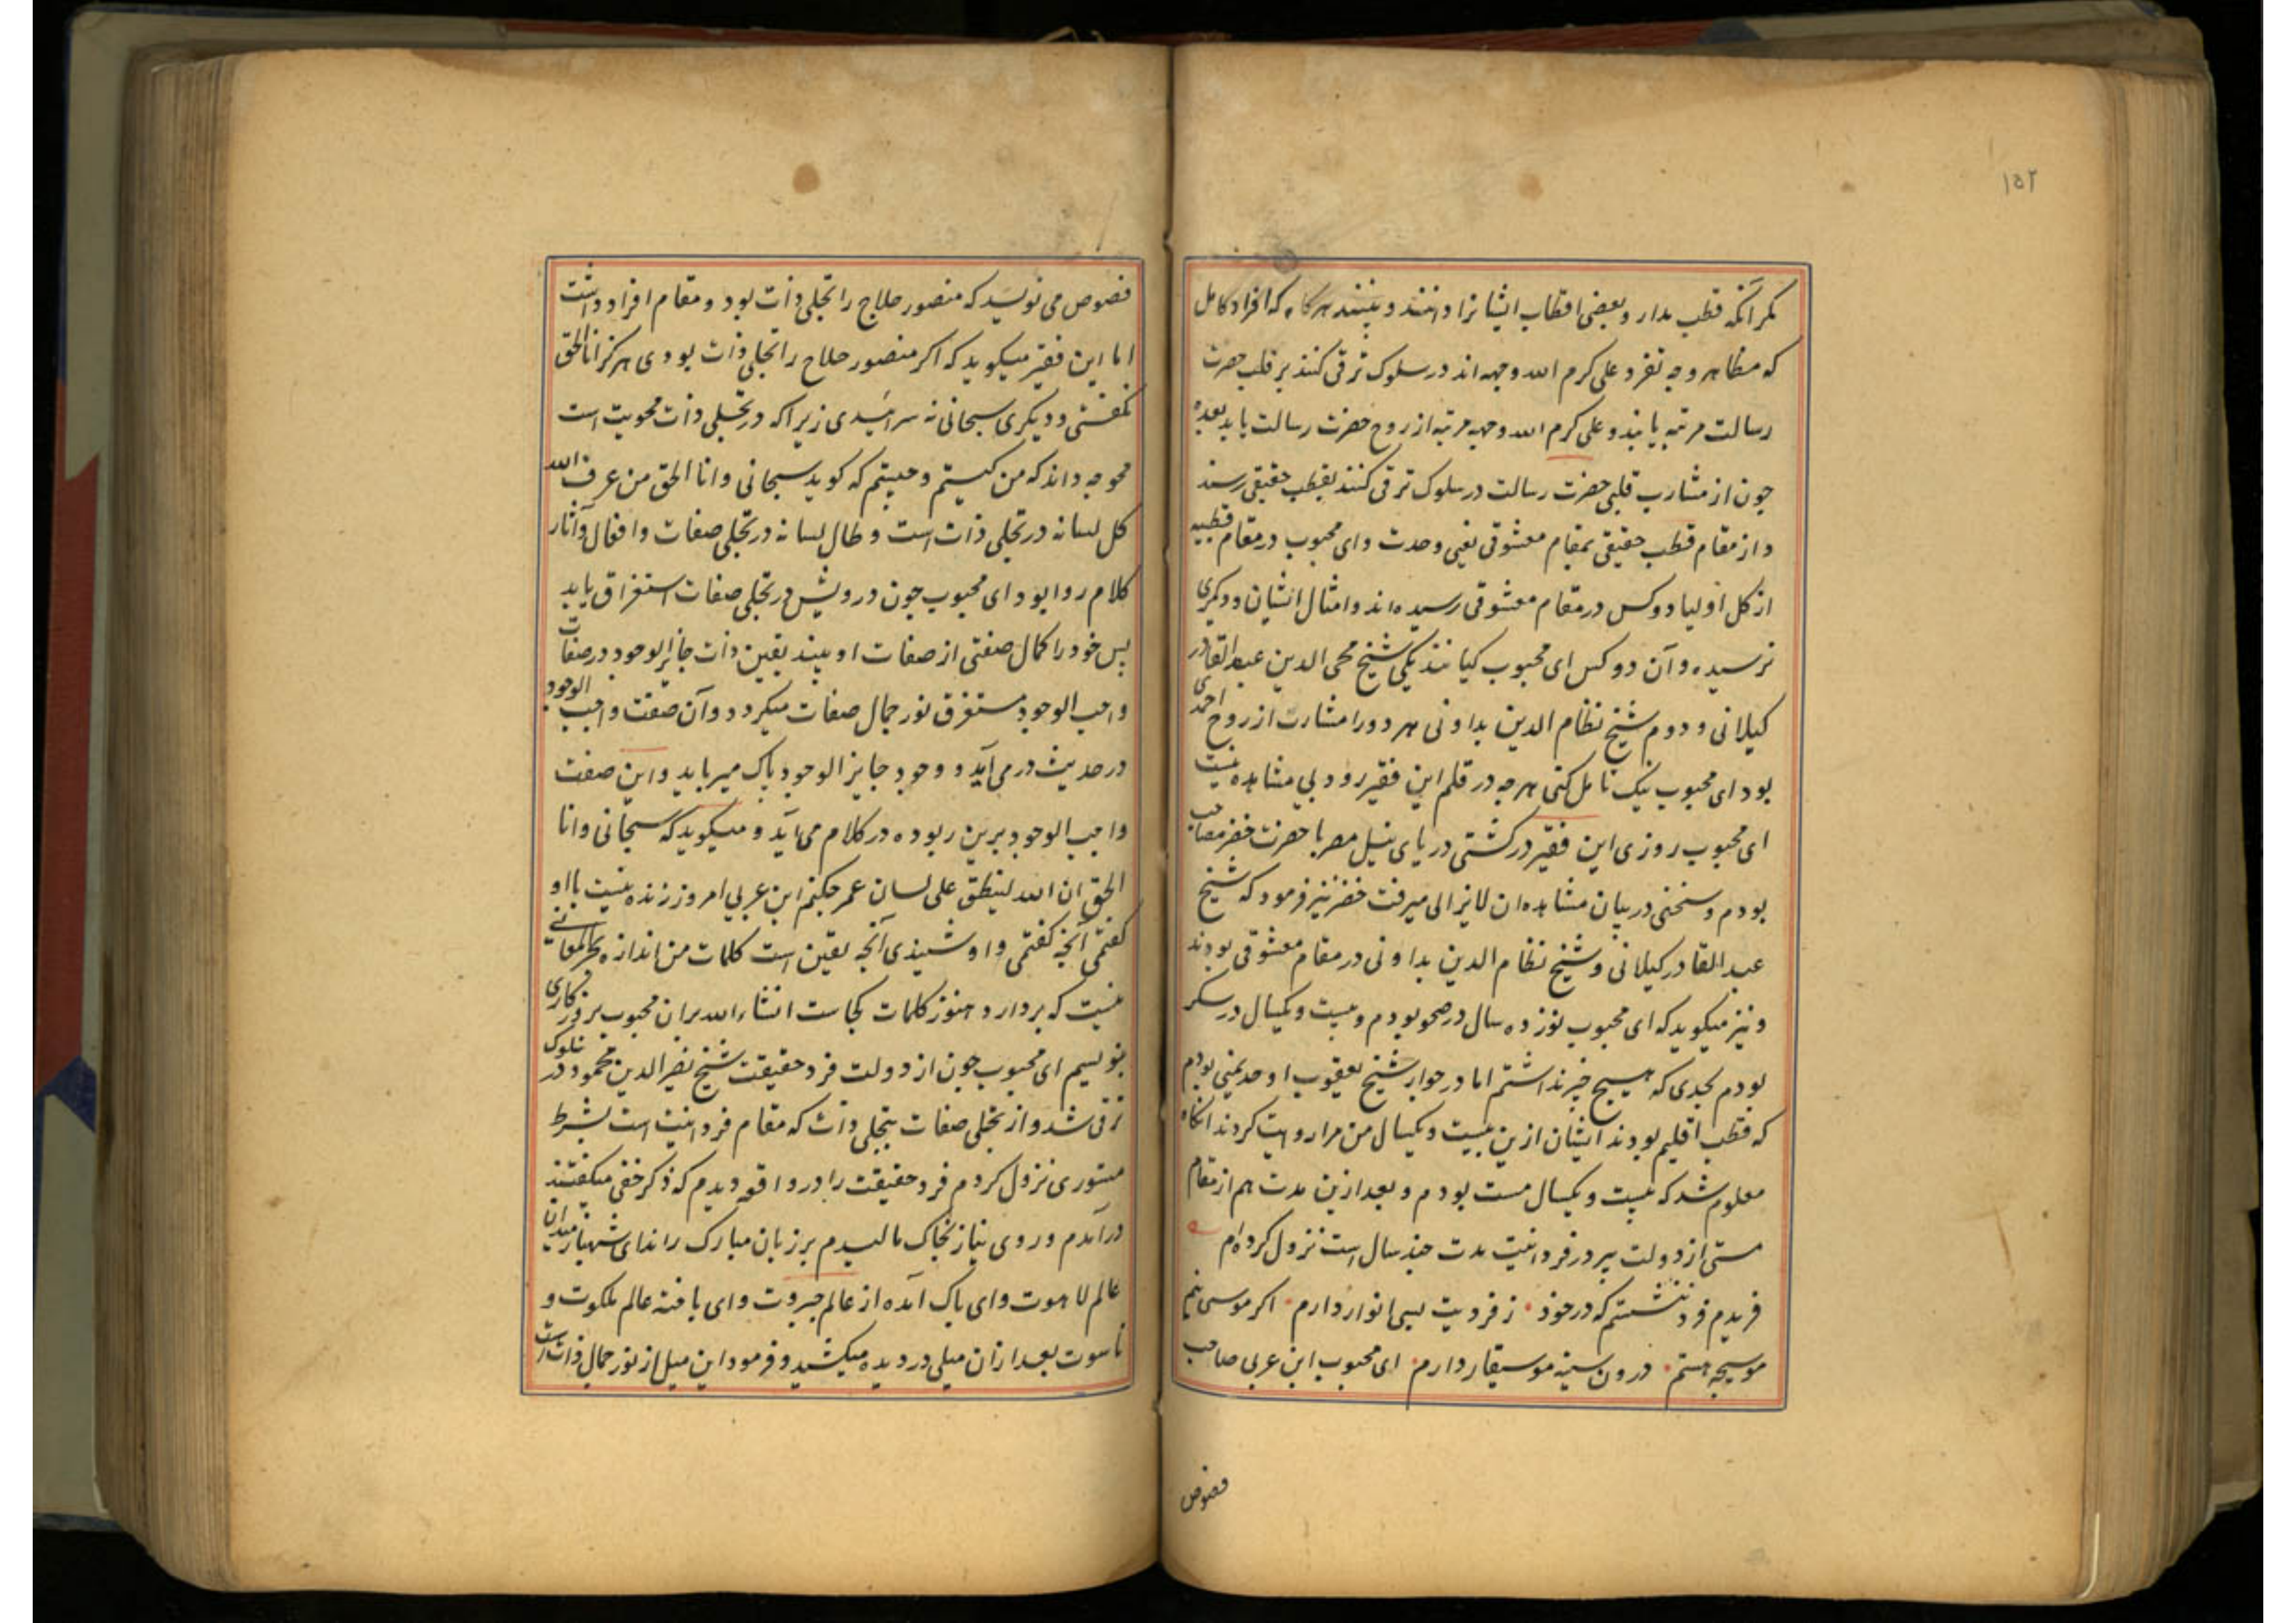 ۱۵۲
مکر آنکه قطب مدار و بعضی اقطاب ایشانرا دانند و بینند هرکاه که افراد کامل
که مظاهر وجه تفرد علی کرم الله وجهه اند در سلوک ترقی کنند بر قلب حضرت
رسالت مرتبه یابند و علی کرم الله وجهه مرتبه از روح حضرت رسالت یابد بعده
چون از مشارب قلبی حضرت رسالت در سلوک ترقی کنند بقطب حقیقی رسند
و از مقام قطب حقیقی بمقام معشوقی یعنی وحدت و ای محبوب در مقام قطبیه
از کل اولیا دو کس در مقام معشوقی رسیده اند و امثال ایشان و دیکری
نرسیده و آن دو کس ای محبوب کیانند یکی شیخ محی الدین عبدالقادر
کیلانی و دوم شیخ نظام الدین بداونی هر دو را مشارت از روح احمدی
بود ای محبوب نیک تامل کنی هرچه در قلم این فقیر رود بی مشاهده نیست
ای محبوب روزی این فقیر در کشتی دریای نیل مصر با حضرت خضر مصاحب
بودم و سخنی در بیان مشاهده ان لایزالی میرفت خضر نیز فرمود که شیخ
عبد القادر کیلانی و شیخ نظام الدین بداونی در مقام معشوقی بودند
و نیز میکوید که ای محبوب نوزده سال در صحو بودم و بیست و یکسال در سکر
بودم بحدی که هیچ خبر نداشتم اما در جوار شیخ یعقوب اوحد یمنی بودم
که قطب اقلیم بودند ایشان ازین بیست و یکسال من مرا روایت کردند انکاه
معلوم شد که بیست و یکسال مست بودم و بعد ازین مدت هم از مقام
مستی از دولت پیر در فردانیت مدت چند سال است نزول کرده ام
فریدم فرد بنشستم که در خود · ز فردیت بسی انوار دارم · اکر موسی نیم
موسیجه هستم · درون سینه موسیقار دارم · ای محبوب ابن عربی صاحب
فصوص
فصوص می نویسد که منصور حلاج را تجلی ذات بود و مقام افراد داشت
اما این فقیر میکوید که اکر منصور حلاج را تجلی ذات بودی هرکز انا الحق
نکفتی و دیکری سبحانی نه سراییدی زیرا که در تجلی ذات محویت است
محو چه داند که من کیستم و چیستم که کوید سبحانی و انا الحق من عرف الله
کل لسانه در تجلی ذات است و طال لسانه در تجلی صفات و افعال و آثار
کلام روا بود ای محبوب چون درویش در تجلی صفات استغراق یابد
پس خود را کمال صفتی از صفات او بیند یقین ذات جایز الوجود در صفات
واجب الوجود مستغرق نور جمال صفات میکردد و آن صفت واجب الوجود
در حدیث در می آید و وجود جایز الوجود پاک میرباید و این صفت
واجب الوجود برین ربوده در کلام می آید و میکوید که سبحانی و انا
الحق ان الله لینطق علی لسان عمر چکنم ابن عربی امروز زنده نیست با او
کفتمی آنچه کفتمی و او شنیدی آنچه یقین است کلمات من اندازه بحر المعانی
نیست که بردارد هنوز کلمات بجاست انشاء الله بران محبوب بروزکاری
بنویسم ای محبوب چون از دولت فرد حقیقت شیخ نصیر الدین محمود در سلوک
ترقی شد و از تجلی صفات بتجلی ذات که مقام فردانیت است بشرط
مستوری نزول کردم فرد حقیقت را در واقعه دیدم که ذکر خفی میکفتند
درآمدم و روی نیاز بخاک مالیدم بر زبان مبارک راند ای شهباز میدان
عالم لاهوت و ای پاک آمده از عالم جبروت و ای یافته عالم ملکوت و
ناسوت بعد ازان میلی در دیده میکشید و فرمود این میل از نور جمال ذات است